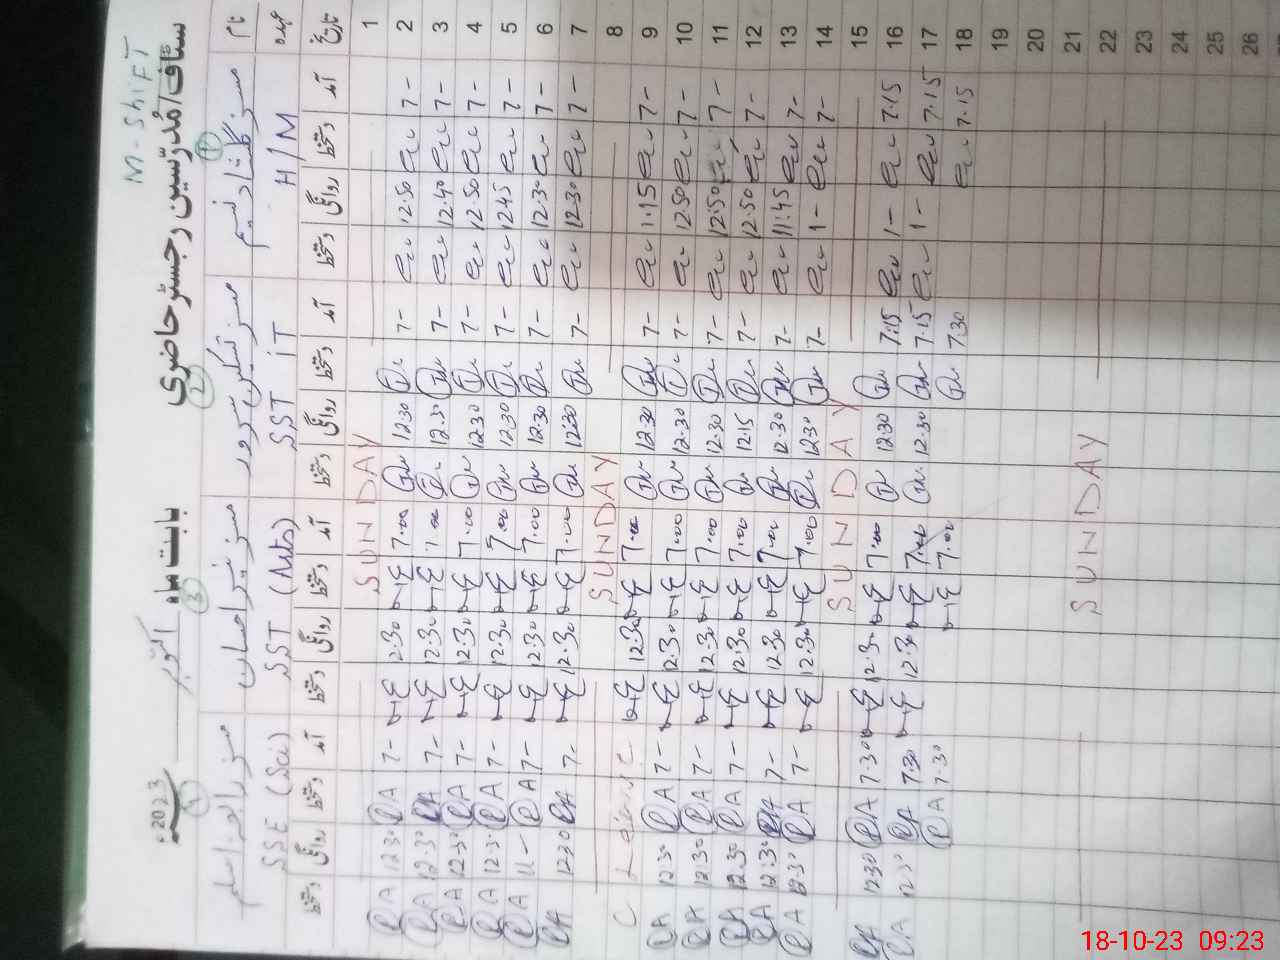 M-Shift
سٹاف/مُدرّسین رجسٹر حاضری بابت ماہ اکتوبر 2023
1 2 3 4
نام مسز گلشاد نسیم مسز تسکین سرور مسز
عہدہ H/M SST IT SST (Arts) SSE (Sci)
تاریخ آمد دستخط روانگی دستخط آمد دستخط روانگی دستخط آمد دستخط روانگی دستخط آمد دستخط روانگی دستخط
1 SUNDAY
2 7- 12.50 7- 12.30 7.00 12.30 7- RA 12.30 RA
3 7- 12.40 7- 12.30 7.00 12.30 7- RA 12.30 RA
4 7- 12.50 7- 12.30 7.00 12.30 7- RA 12.30 RA
5 7- 12.45 7- 12.30 7.00 12.30 7- RA 12.30 RA
6 7- 12.30 7- 12.30 7.00 12.30 7- RA 11- RA
7 7- 12.30 7- 12.30 7.00 12.30 7- RA 12.30 RA
8 SUNDAY
9 7- 1.15 7- 12.30 7.00 12.30 C Leave C
10 7- 12.50 7- 12.30 7.00 12.30 7- RA 12.30 RA
11 7- 12.50 7- 12.30 7.00 12.30 7- RA 12.30 RA
12 7- 12.50 7- 12.15 7.00 12.30 7- RA 12.30 RA
13 7- 11:45 7- 12.30 7.00 12.30 7- RA 12.30 RA
14 7- 1- 7- 12.30 7.00 12.30 7- RA 12.30 RA
15 SUNDAY
16 7.15 1- 7:15 12.30 7.00 12.30 7.30 RA 12.30 RA
17 7.15 1- 7.15 12.30 7.00 12.30 7.30 RA 12.30 RA
18 7.15 7.30 7.00 7.30 RA
19
20
21
22 SUNDAY
23
24
25
26
18-10-23 09:23